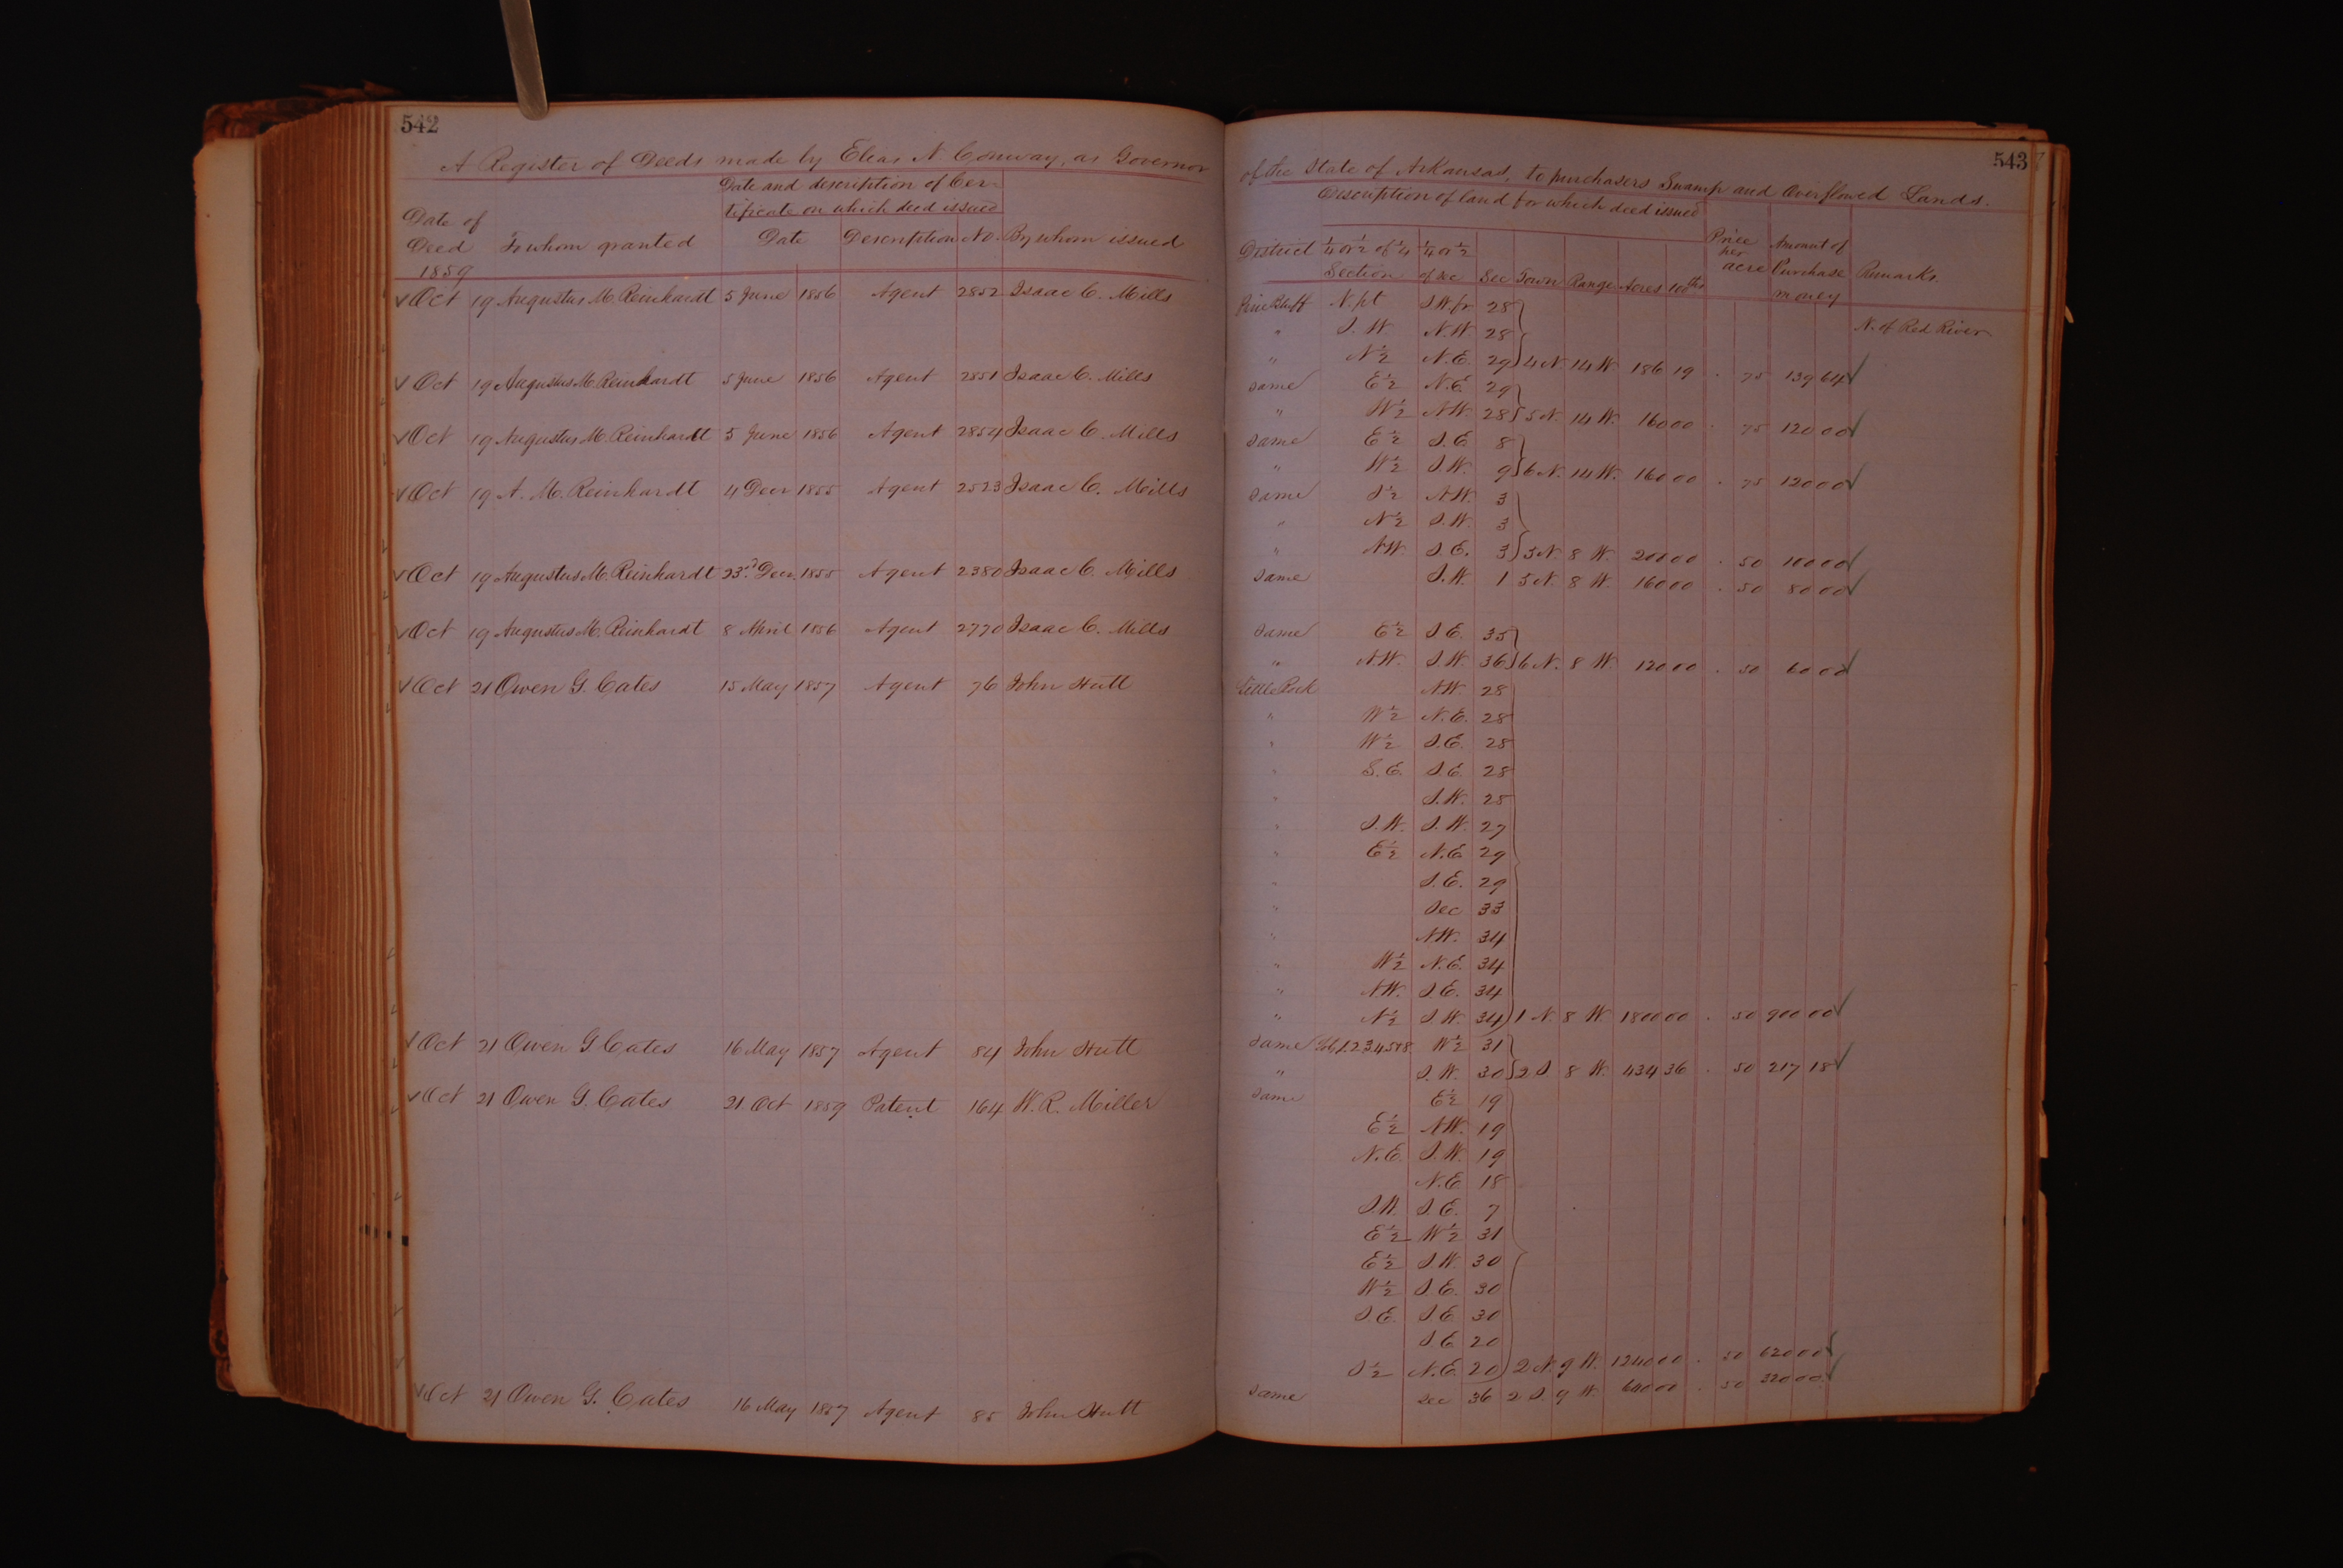 542
A Register of Deeds made by Elias N. Conway, as Governor
Date and description of Cer-
tificate on which deed issued
Date of
Deed To whom granted Date Description No. By whom issued
1859
✓ Oct 19 Augustus M. Reinhardt 5 June 1856 Agent 2852 Isaac C. Mills
✓ Oct 19 Augustus M. Reinhardt 5 June 1856 Agent 2851 Isaac C. Mills
✓ Oct 19 Augustus M. Reinhardt 5 June 1856 Agent 2854 Isaac C. Mills
✓ Oct 19 A. M. Reinhardt 4 Decr 1855 Agent 2523 Isaac C. Mills
✓ Oct 19 Augustus M. Reinhardt 23rd Decr. 1855 Agent 2380 Isaac C. Mills
✓ Oct 19 Augustus M. Reinhardt 8 April 1856 Agent 2770 Isaac C. Mills
✓ Oct 21 Owen G. Cates 15 May 1857 Agent 76 John Hutt
✓ Oct 21 Owen G. Cates 16 May 1857 Agent 84 John Hutt
✓ Oct 21 Owen G. Cates 21. Oct 1859 Patent 164 W. R. Miller
✓ Oct 21 Owen G. Cates 16 May 1857 Agent 85 John Hutt
543
of the State of Arkansas, to purchasers Swamp and Overflowed Lands.
Description of land for which deed issued
District 1/4 or 1/2 of 1/4 1/4 or 1/2 Price per Amount of
Section of Sec Sec Town Range Acres 100ths acre Purchase Remarks.
money
Pine Bluff N. pt S.W fr. 28
" S. W. N.W. 28 N. of Red River
" N 1/2 N. E. 29 4 N. 14 W 186 19 . 75 139 64 ✓
same E 1/2 N.E. 29
" W 1/2 N.W. 28 5 N. 14 W. 160 00 . 75 120 00 ✓
same E 1/2 S. E. 8
" W 1/2 S.W. 9 6 N. 14 W. 160 00 . 75 120 00 ✓
same S 1/2 N.W. 3
" N 1/2 S.W. 3
" N.W. S. E. 3 3 N. 8 W. 200 00 . 50 100 00 ✓
same S.W. 1 5 N. 8 W. 160 00 . 50 80 00 ✓
same E 1/2 S. E. 35
" N.W. S.W. 36 6 N. 8 W. 120 00 . 50 60 00 ✓
Little Rock N.W. 28
" W 1/2 N. E. 28
" W 1/2 S. E. 28
" S. E. S. E. 28
" S. W. 28
" S. W. S. W. 27
" E 1/2 N. E. 29
" S. E. 29
" Sec 33
" N.W. 34
" W 1/2 N. E. 34
" N.W. S. E. 34
" N 1/2 S. W. 34 1 N. 8 W. 1800 00 . 50 900 00 ✓
same Lots 1.2.3.4.5 & 8 W 1/2 31
" S. W. 30 2 S. 8 W. 434 36 . 50 217 18 ✓
same E 1/2 19
E 1/2 N.W. 19
N. E. S. W. 19
N. E 18
S.W. S. E. 7
E 1/2 W 1/2 31
E 1/2 S.W. 30
W 1/2 S. E. 30
S. E. S. E. 30
S. E 20
S 1/2 N. E. 20 2 N. 9 W. 1240 00 . 50 620 00 ✓
same Sec 36 2 S. 9 W. 640 00 . 50 320 00 ✓